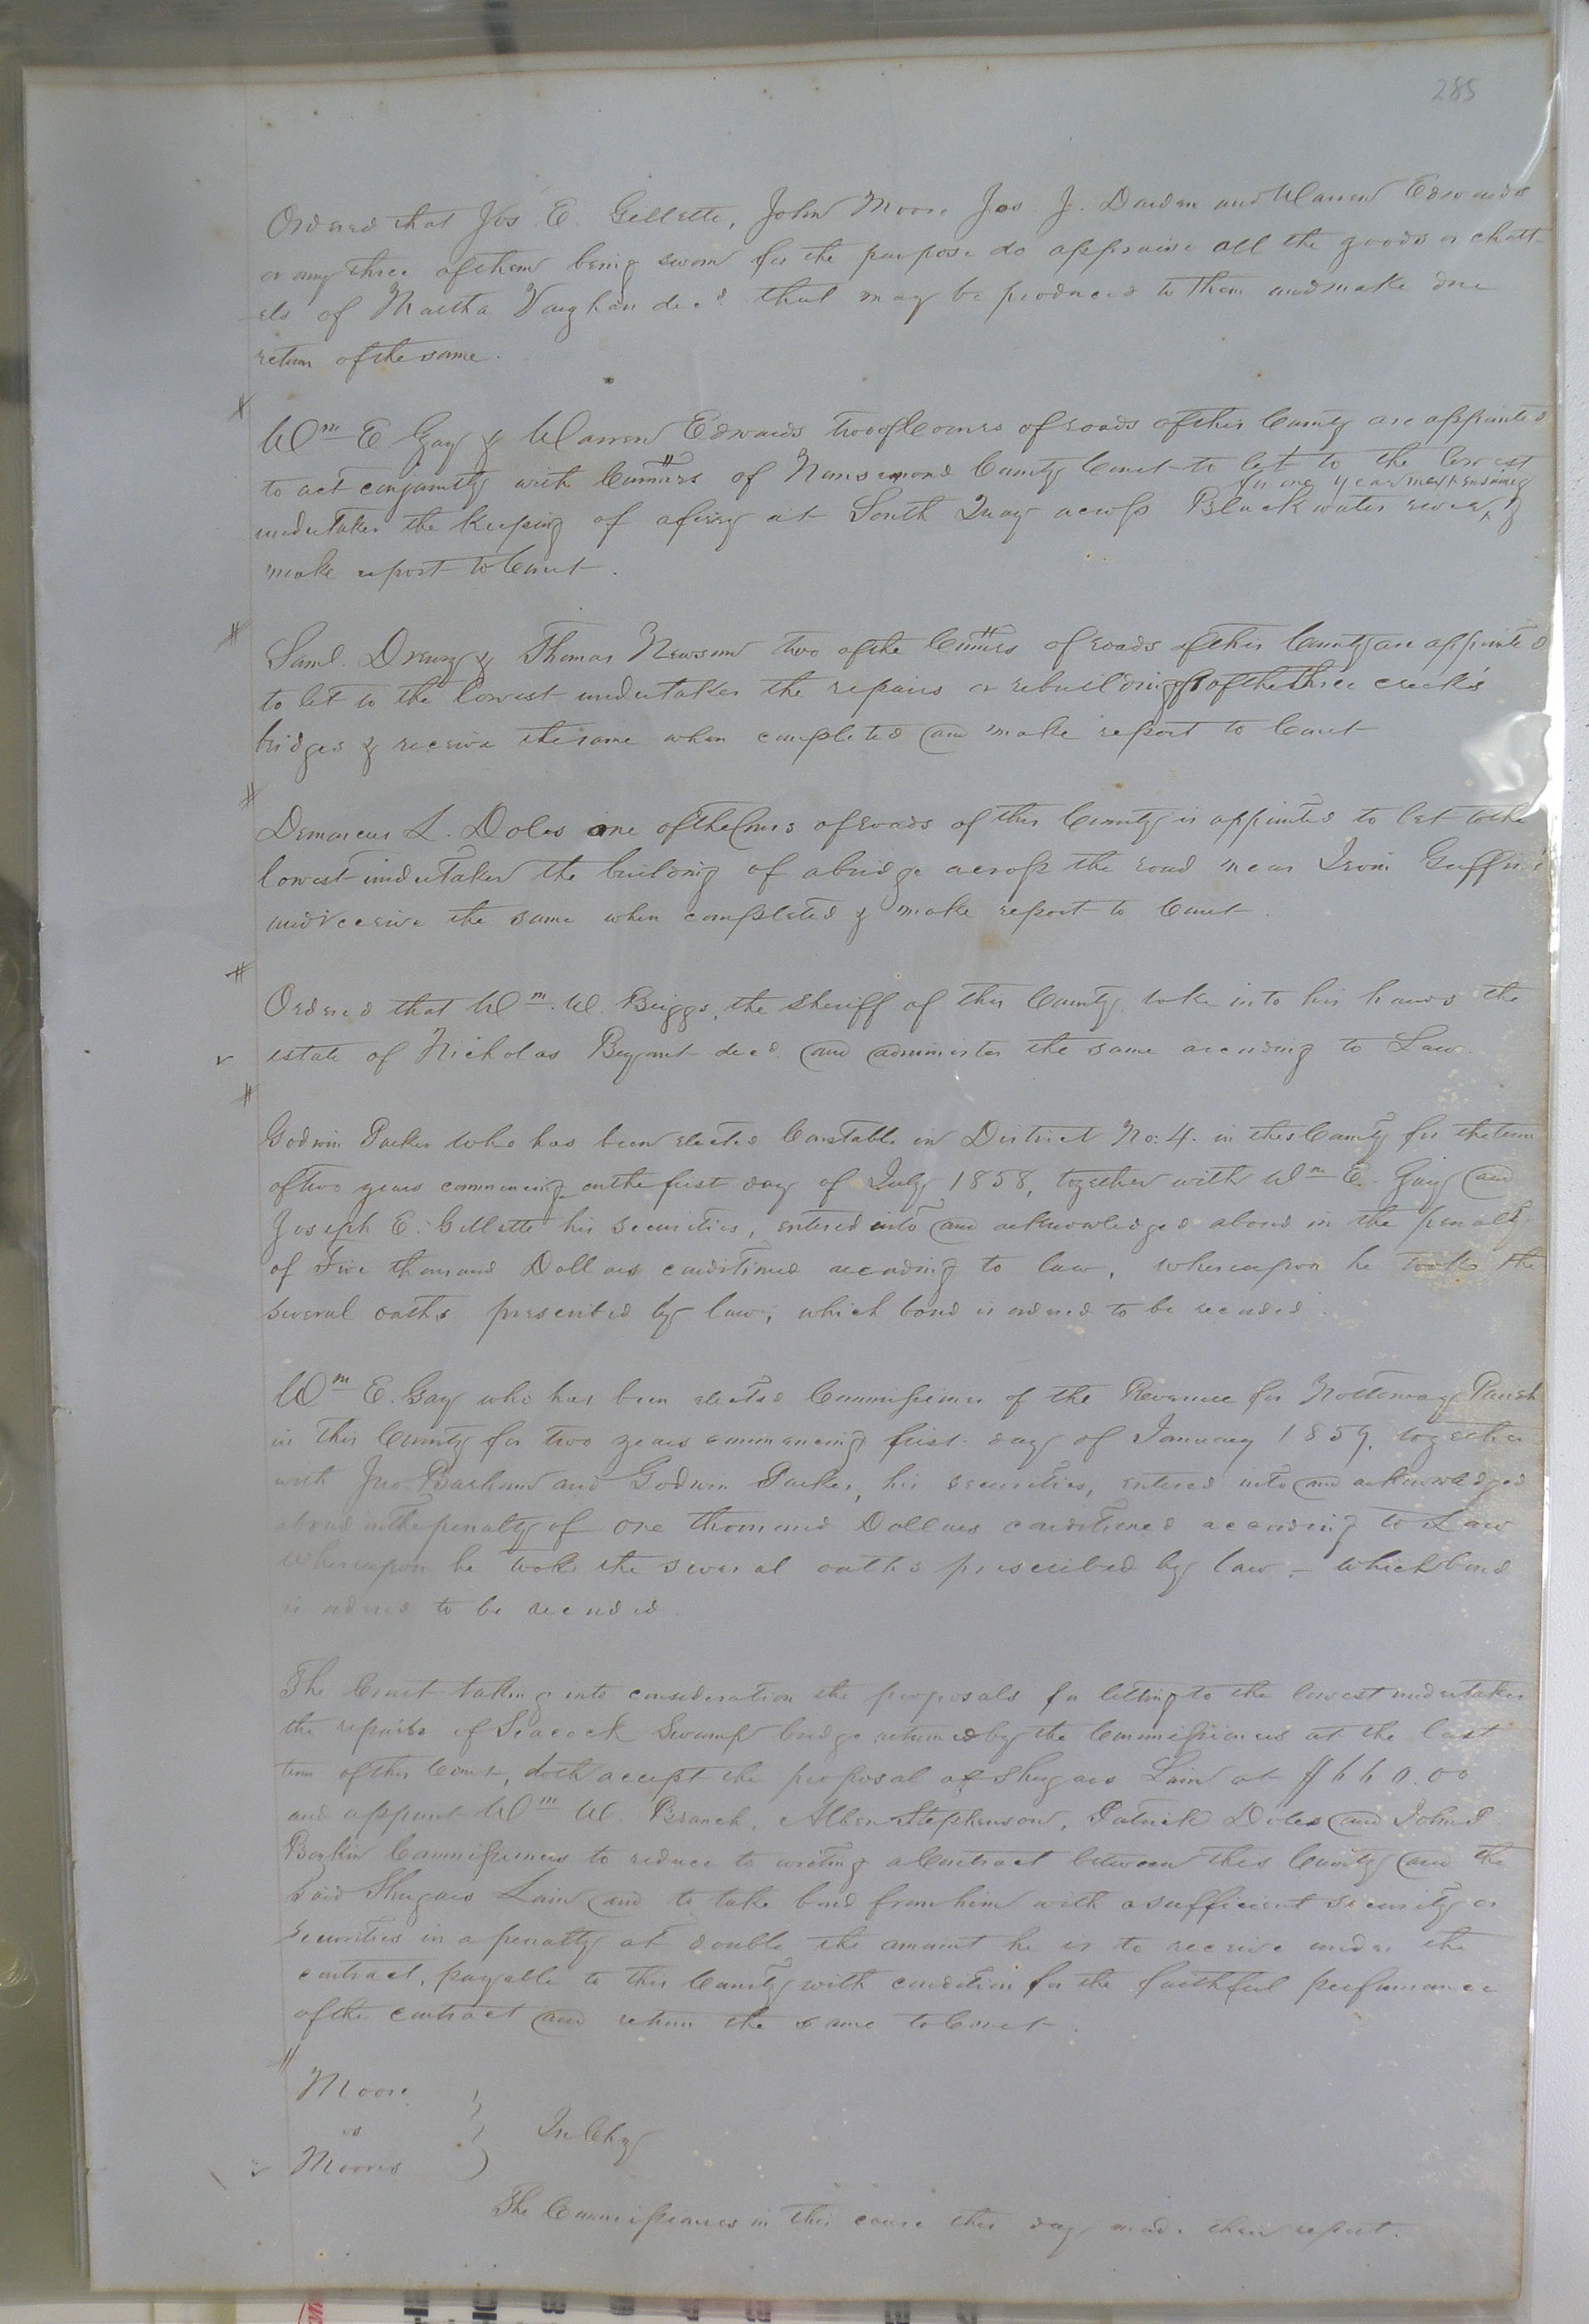 285
Ordered that Jos. E. Gillette, John Moore Jos. J. Darden and Warren Edwards
or any three of them being sworn for the purpose do appraise all the goods or chatt-
-els of Martha Vaughan decd. that may be produced to them and make due
return of the same.
Wm E Gay & Warren Edwards two of Comrs of roads of this County are appointed
to act conjointly with Commrs of Nansemond County Court to let to the lowest
for one year next ensuing
undertaker the keeping of a ferry at South Quay across Blackwater river, &
make report to Court.
Saml. Drewry & Thomas Newsom two of the Commrs of roads of this County are appointed
to let to the lowest undertaker the repairs or rebuilding of the three creek's
bridges & receive the same when completed and make report to Court
Demarcus L. Doles one of the Comrs of roads of this County is appointed to let to the
lowest undertaker the building of a bridge across the road near
and receive the same when completed & make report to Court.
Ordered that Wm. W. Briggs, the Sheriff of this County, take into his hands the
estate of Nicholas Bryant decd. and administer the same according to Law.
Godwin Parker who has been elected Constable in District No: 4. in this County for the term
of two years commencing on the first day of July 1858, together with Wm E. Gay and
Joseph E. Gillette his securities, entered into and acknowledged a bond in the penalty
of Five thousand Dollars conditioned according to law, whereupon he took the
several oaths prescribed by law; which bond is ordered to be recorded.
Wm E. Gay who has been elected Commissioner of the Revenue for Nottoway Parish
in this County for two years commencing first day of January 1859, together
with Jno. Barham and Godwin Parker, his securities, entered into and acknowledged
a bond in the penalty of one thousand Dollars conditioned according to Law
Whereupon he took the several oaths prescribed by law – which bond
is ordered to be recorded.
The Court taking into consideration the proposals for letting to the lowest undertaker
the repairs of Seacock Swamp bridge returned by the Commissioners at the last
term of this Court, doth accept the proposal of Shugars Lain at $660.00
and appoint Wm W. Branch, Albert Stephenson, Patrick Doles and John D.
Boykin Commissioners to reduce to writing a Contract between this County and the
said Shugars Lain and to take bond from him with a sufficient security or
securities in a penalty at double the amount he is to receive under the
contract, payable to this County with condition for the faithful performance
of the contract and return the same to Court.
Moore
vs
Moores
In Chy
The Commissioners in this cause this day made their report.